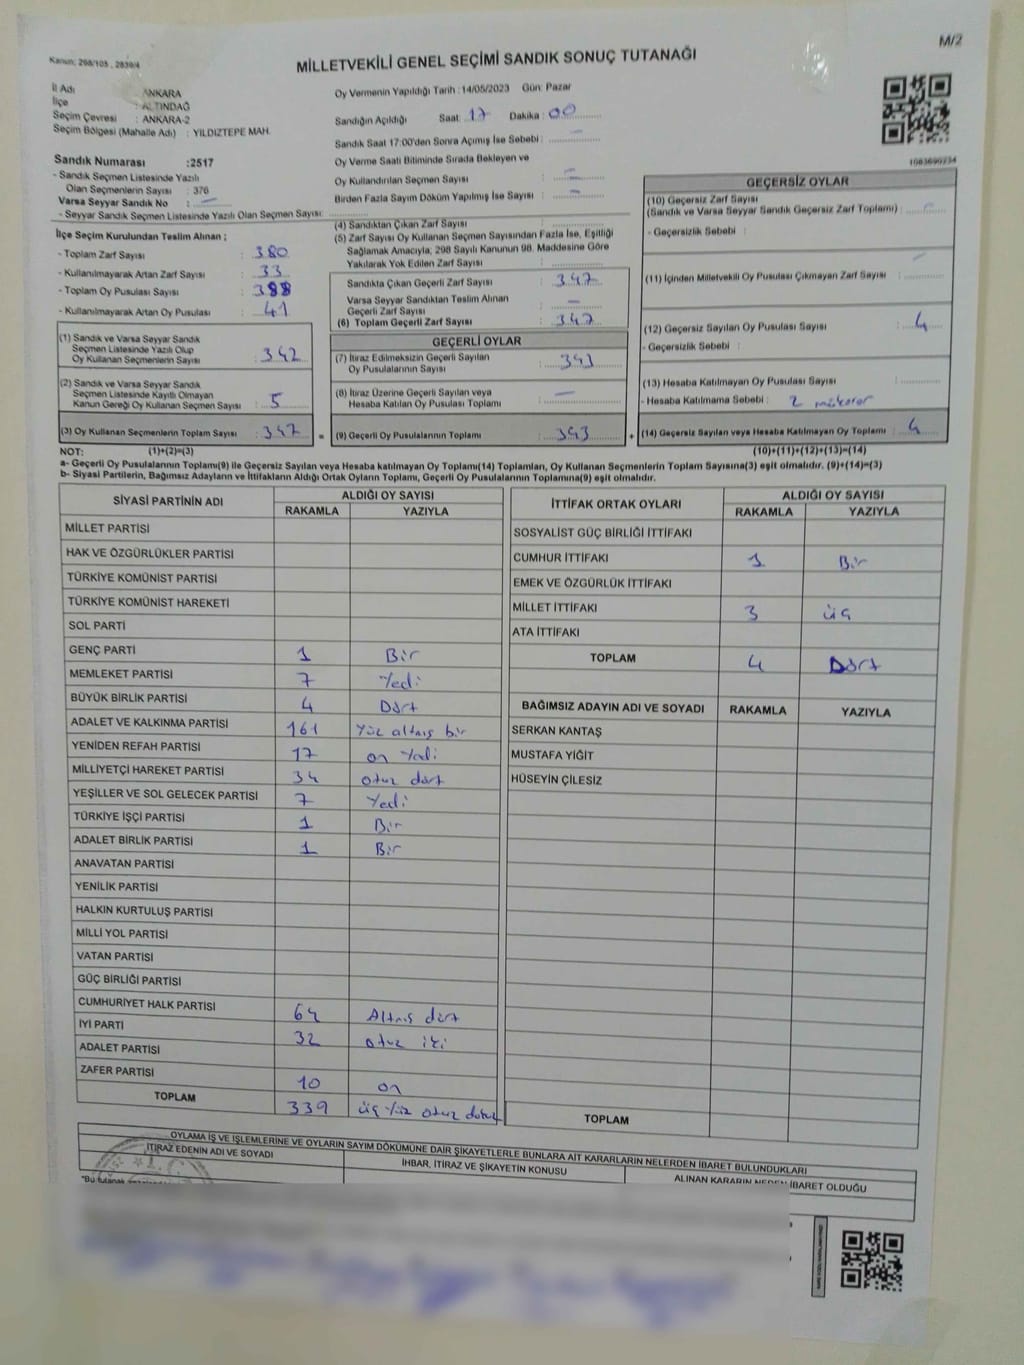 M/2
Kanun; 298/105 , 2839/4
MİLLETVEKİLİ GENEL SEÇİMİ SANDIK SONUÇ TUTANAĞI
İl Adı : ANKARA
İlçe : ALTINDAĞ
Seçim Çevresi : ANKARA-2
Seçim Bölgesi (Mahalle Adı) : YILDIZTEPE MAH.
Sandık Numarası :2517
- Sandık Seçmen Listesinde Yazılı
Olan Seçmenlerin Sayısı : 376
Varsa Seyyar Sandık No : —
- Seyyar Sandık Seçmen Listesinde Yazılı Olan Seçmen Sayısı:
Oy Vermenin Yapıldığı Tarih :14/05/2023 Gün: Pazar
Sandığın Açıldığı Saat: 17 Dakika : 00
Sandık Saat 17:00'den Sonra Açımış İse Sebebi : —
Oy Verme Saati Bitiminde Sırada Bekleyen ve
Oy Kullandırılan Seçmen Sayısı : —
Birden Fazla Sayım Döküm Yapılmış İse Sayısı : —
1083690234
İlçe Seçim Kurulundan Teslim Alınan ;
- Toplam Zarf Sayısı : 380
- Kullanılmayarak Artan Zarf Sayısı : 33
- Toplam Oy Pusulası Sayısı : 388
- Kullanılmayarak Artan Oy Pusulası : 41
(1) Sandık ve Varsa Seyyar Sandık
Seçmen Listesinde Yazılı Olup
Oy Kullanan Seçmenlerin Sayısı : 342
(2) Sandık ve Varsa Seyyar Sandık
Seçmen Listesinde Kayıtlı Olmayan
Kanun Gereği Oy Kullanan Seçmen Sayısı : 5
(3) Oy Kullanan Seçmenlerin Toplam Sayısı : 347 =
(4) Sandıktan Çıkan Zarf Sayısı :
(5) Zarf Sayısı Oy Kullanan Seçmen Sayısından Fazla İse, Eşitliği
Sağlamak Amacıyla; 298 Sayılı Kanunun 98. Maddesine Göre
Yakılarak Yok Edilen Zarf Sayısı :
Sandıkta Çıkan Geçerli Zarf Sayısı : 347
Varsa Seyyar Sandıktan Teslim Alınan
Geçerli Zarf Sayısı : —
(6) Toplam Geçerli Zarf Sayısı : 347
GEÇERLİ OYLAR
(7) İtiraz Edilmeksizin Geçerli Sayılan
Oy Pusulalarının Sayısı : 343
(8) İtiraz Üzerine Geçerli Sayılan veya
Hesaba Katılan Oy Pusulası Toplamı : —
(9) Geçerli Oy Pusulalarının Toplamı : 343 +
GEÇERSİZ OYLAR
(10) Geçersiz Zarf Sayısı
(Sandık ve Varsa Seyyar Sandık Geçersiz Zarf Toplamı) :
- Geçersizlik Sebebi :
(11) İçinden Milletvekili Oy Pusulası Çıkmayan Zarf Sayısı : —
(12) Geçersiz Sayılan Oy Pusulası Sayısı : 4
- Geçersizlik Sebebi :
(13) Hesaba Katılmayan Oy Pusulası Sayısı :
- Hesaba Katılmama Sebebi : 2
(14) Geçersiz Sayılan veya Hesaba Katılmayan Oy Toplamı : 4
NOT: (1)+(2)=(3) (10)+(11)+(12)+(13)=(14)
a- Geçerli Oy Pusulalarının Toplamı(9) ile Geçersiz Sayılan veya Hesaba katılmayan Oy Toplamı(14) Toplamları, Oy Kullanan Seçmenlerin Toplam Sayısına(3) eşit olmalıdır. (9)+(14)=(3)
b- Siyasi Partilerin, Bağımsız Adayların ve İttifakların Aldığı Ortak Oyların Toplamı, Geçerli Oy Pusulalarının Toplamına(9) eşit olmalıdır.
SİYASİ PARTİNİN ADI ALDIĞI OY SAYISI
RAKAMLA YAZIYLA
MİLLET PARTİSİ
HAK VE ÖZGÜRLÜKLER PARTİSİ
TÜRKİYE KOMÜNİST PARTİSİ
TÜRKİYE KOMÜNİST HAREKETİ
SOL PARTİ
GENÇ PARTİ 1 Bir
MEMLEKET PARTİSİ 7 Yedi
BÜYÜK BİRLİK PARTİSİ 4 Dört
ADALET VE KALKINMA PARTİSİ 161 Yüz altmış bir
YENİDEN REFAH PARTİSİ 17 on Yedi
MİLLİYETÇİ HAREKET PARTİSİ 34 otuz dört
YEŞİLLER VE SOL GELECEK PARTİSİ 7 Yedi
TÜRKİYE İŞÇİ PARTİSİ 1 Bir
ADALET BİRLİK PARTİSİ 1 Bir
ANAVATAN PARTİSİ
YENİLİK PARTİSİ
HALKIN KURTULUŞ PARTİSİ
MİLLİ YOL PARTİSİ
VATAN PARTİSİ
GÜÇ BİRLİĞİ PARTİSİ
CUMHURİYET HALK PARTİSİ 64 Altmış dört
İYİ PARTİ 32 otuz iki
ADALET PARTİSİ
ZAFER PARTİSİ 10 on
TOPLAM 339 üç Yüz otuz dokuz
İTTİFAK ORTAK OYLARI ALDIĞI OY SAYISI
RAKAMLA YAZIYLA
SOSYALİST GÜÇ BİRLİĞİ İTTİFAKI
CUMHUR İTTİFAKI 1 Bir
EMEK VE ÖZGÜRLÜK İTTİFAKI
MİLLET İTTİFAKI 3 üç
ATA İTTİFAKI
TOPLAM 4 Dört
BAĞIMSIZ ADAYIN ADI VE SOYADI RAKAMLA YAZIYLA
SERKAN KANTAŞ
MUSTAFA YİĞİT
HÜSEYİN ÇİLESİZ
TOPLAM
OYLAMA İŞ VE İŞLEMLERİNE VE OYLARIN SAYIM DÖKÜMÜNE DAİR ŞİKAYETLERLE BUNLARA AİT KARARLARIN NELERDEN İBARET BULUNDUKLARI
İTİRAZ EDENİN ADI VE SOYADI İHBAR, İTİRAZ VE ŞİKAYETİN KONUSU ALINAN KARARIN NEDEN İBARET OLDUĞU
"Bu tutanak